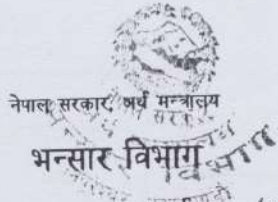 नेपाल सरकार, अर्थ मन्त्रालय
भन्सार विभाग